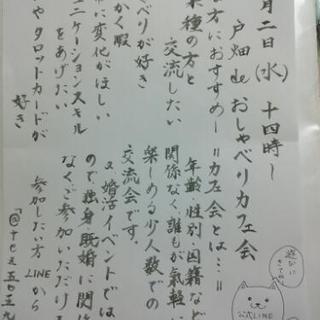 月二日(水) 十四時〜
戸畑deおしゃべりカフェ会
な方におすすめ!
業種の方と
交流したい
べりが好き
かく暇
に変化がほしい
ニケーションスキル
をあげたい
やタロットカードが
好き
=カフェ会とは…=
年齢・性別・国籍など
関係なく、誰もが気軽に
楽しめる少人数での
交流会です。
婚活イベントでは
ので独身既婚に関係
なくご参加いただけ
参加したい方LINEから
遊びに
きてね
公式LINE